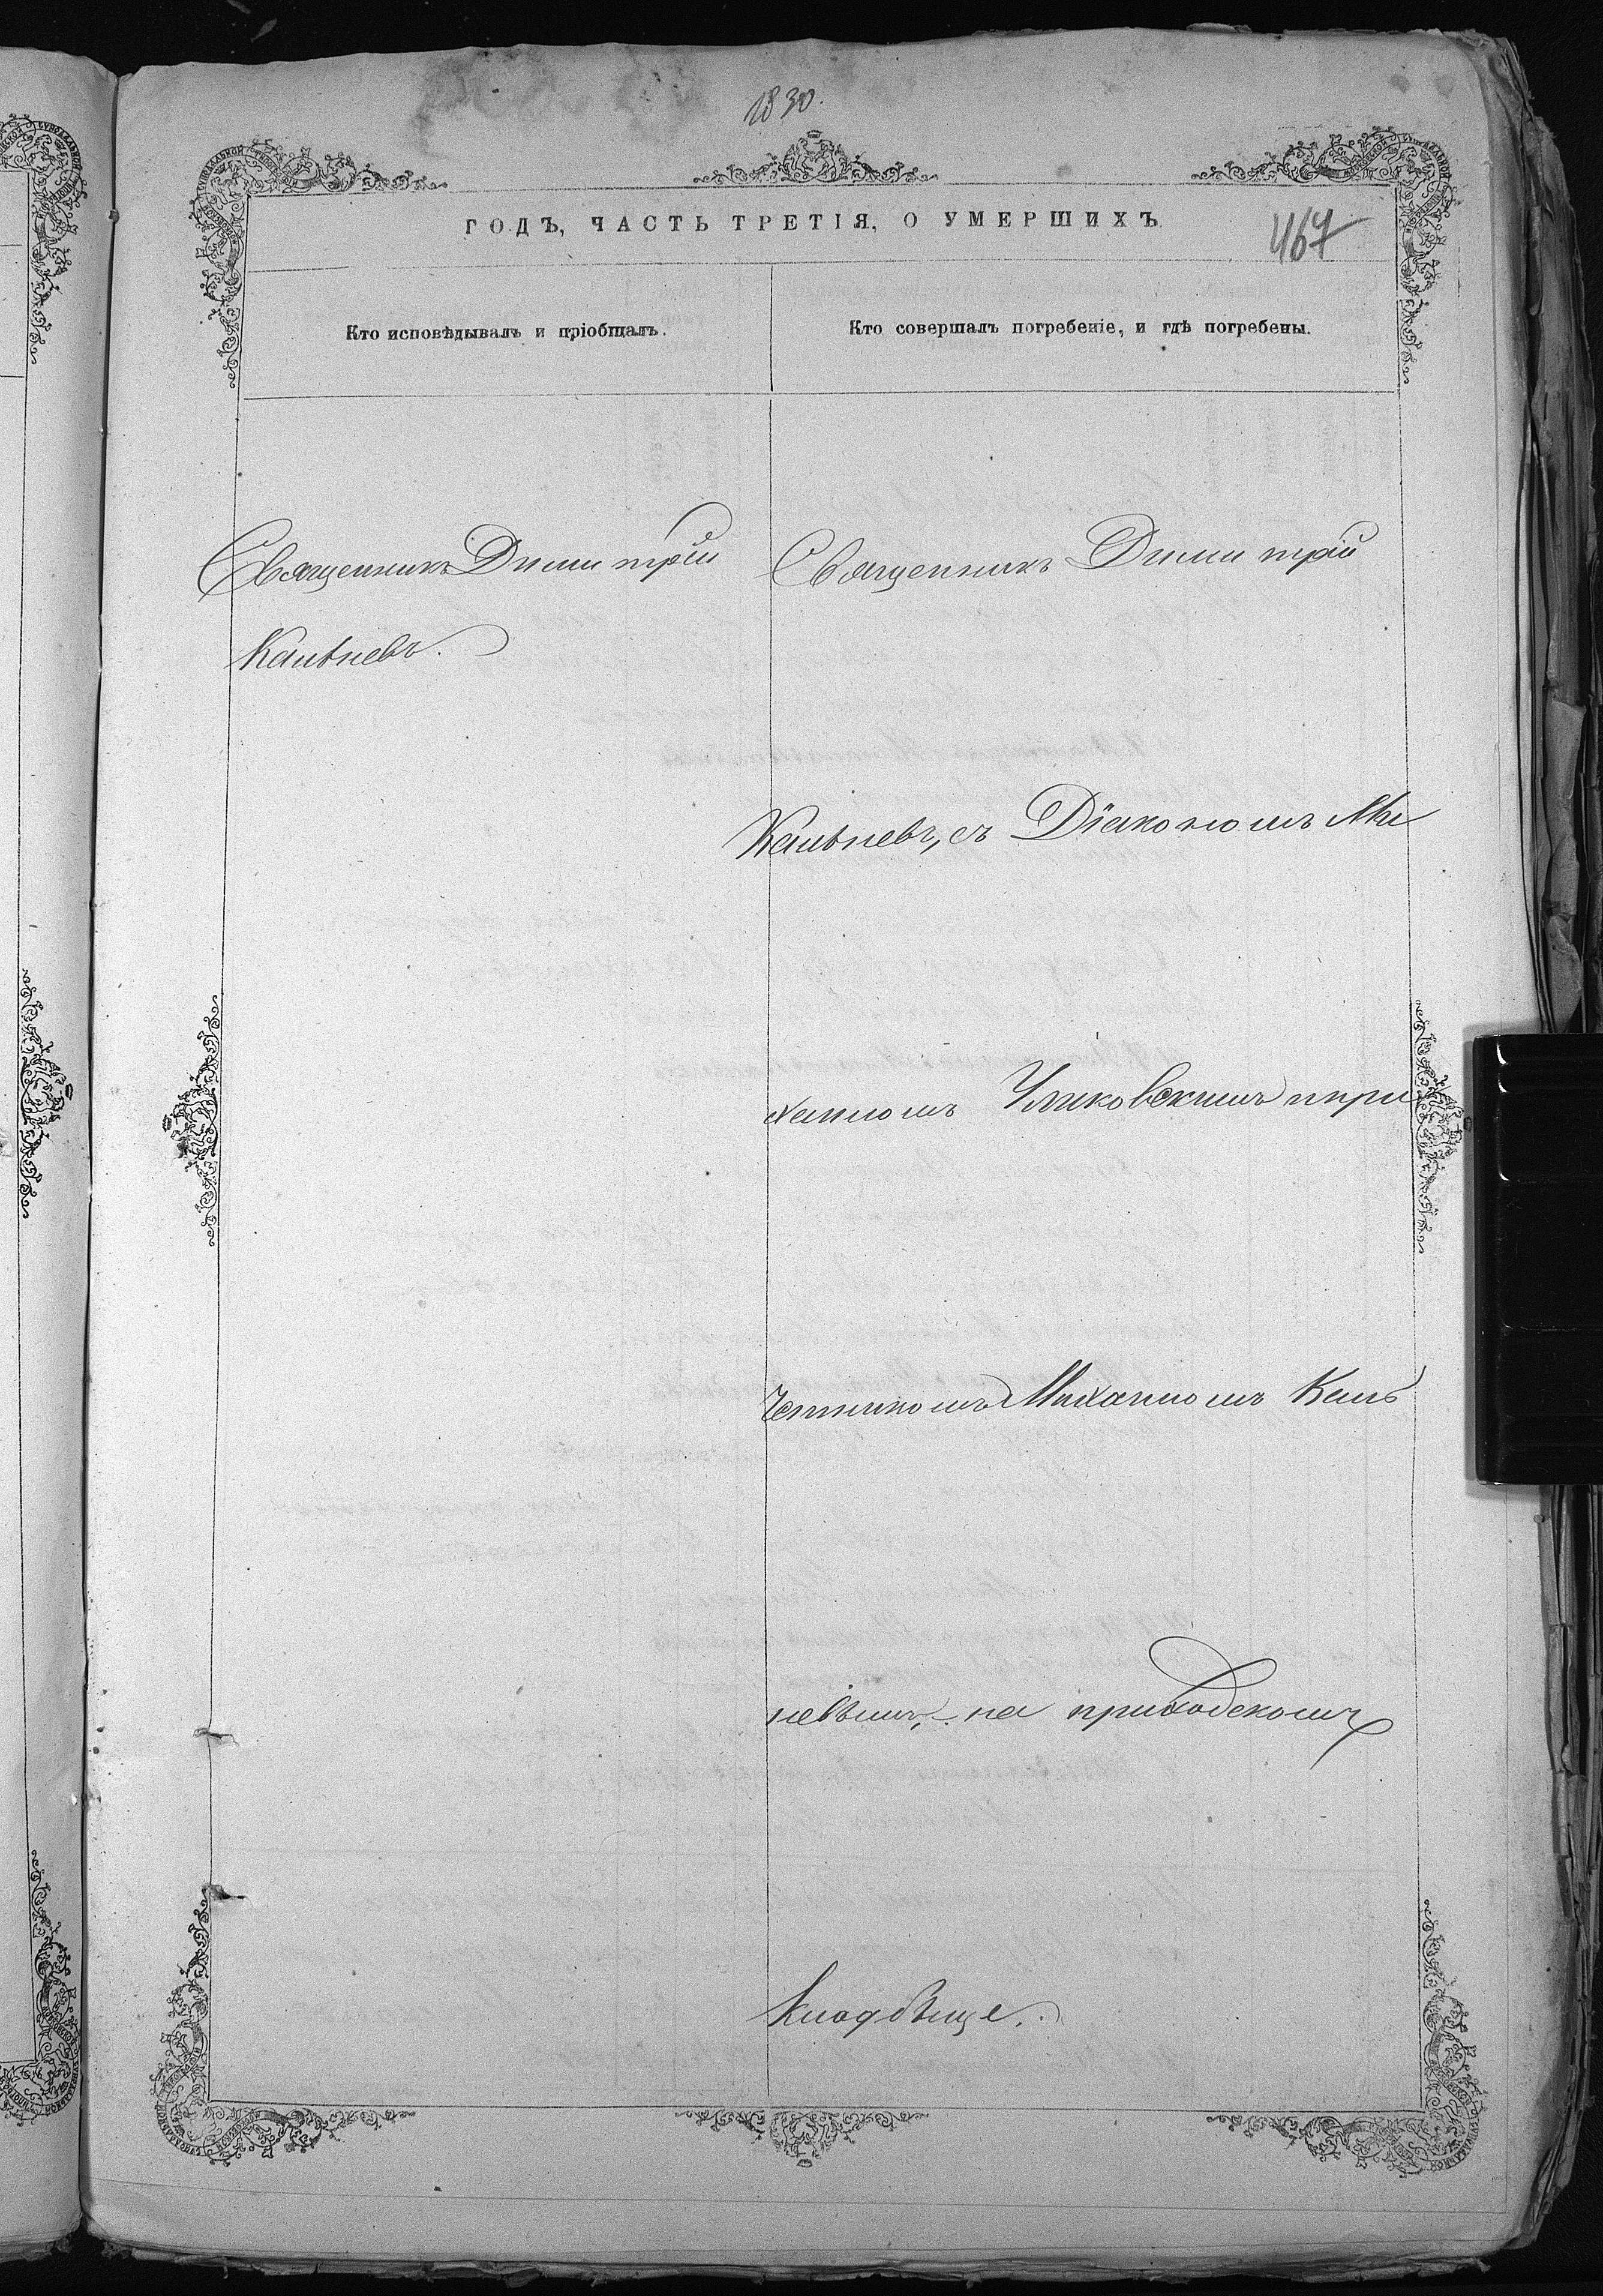 1830.
ГОДЪ, ЧАСТЬ ТРЕТІЯ, О УМЕРШИХЪ
467
Кто исповѣдывалъ и пріобщалъ.
Кто совершалъ погребеніе, и гдѣ погребены.
Священникъ Димитрій
Калѣневъ.
Священникъ Димитрій
Калѣневъ, съ Діакономъ Ми
хаиломъ при
четникомъ Михаиломъ Калѣ
невымъ, на приходскомъ
кладбище.